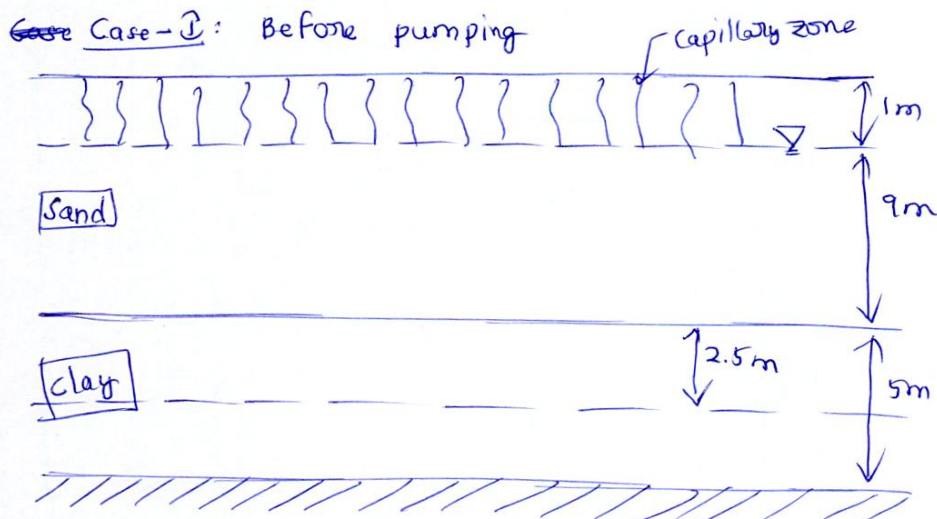 Case Case-I: Before pumping
capillary zone
1m
Sand
9m
2.5m
Clay
5m